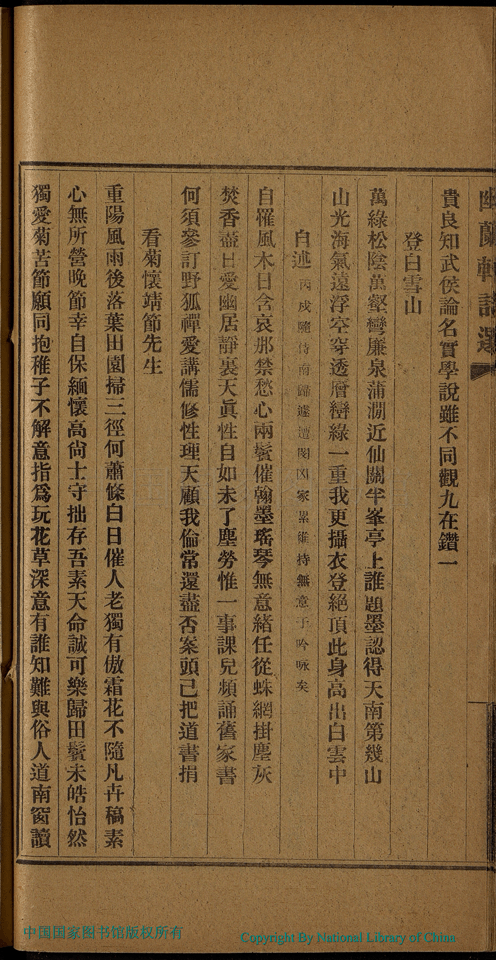 幽蘭軒詩選
貴良知武侯論名實學說雖不同觀九在鑽一
登白雲山
萬綠松陰萬壑巒廉泉蒲澗近仙關半峯亭上誰題墨認得天南第幾山
山光海氣遠浮空穿透層巒綠一重我更攝衣登絕頂此身高出白雲中
自述丙戌隨侍南歸遽遭閔凶家累維持無意于吟咏矣
自罹風木日含哀那禁愁心兩鬢催翰墨瑤琴無意緒任從蛛網掛塵灰
焚香盡日愛幽居靜裏天眞性自如未了塵勞惟一事課兒頻誦舊家書
何須參訂野狐禪愛講儒修性理天顧我倫常還盡否案頭已把道書捐
看菊懷靖節先生
重陽風雨後落葉田園掃三徑何蕭條白日催人老獨有傲霜花不隨凡卉稿素
心無所營晚節幸自保緬懷高尙士守拙存吾素天命誠可樂歸田鬢未皓怡然
獨愛菊苦節願同抱稚子不解意指爲玩花草深意有誰知難與俗人道南窗讀
中国国家图书馆版权所有
Copyright By National Library of China